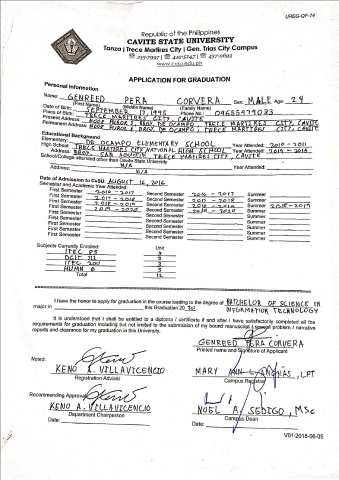 UREG-QF-14
Republic of the Philippines
CAVITE STATE UNIVERSITY
Tanza | Trece Martires City | Gen. Trias City Campus
www.cvsu.edu.ph
APPLICATION FOR GRADUATION
Personal Information
Name: GENREED PERA CORVERA Sex: MALE Age: 24
(First Name) (Middle Name) (Family Name)
Date of Birth: SEPTEMBER 17, 1995 Phone No.: 09655979083
Place of Birth: TRECE MARTIRES CITY, CAVITE
Present Address: DE OCAMPO, TRECE MARTIRES CITY, CAVITE
Permanent Address: DE OCAMPO, TRECE MARTIRES CITY, CAVITE
Educational Background
Elementary: DE OCAMPO ELEMENTARY SCHOOL Year Attended: 2010-2011
High School: TRECE MARTIRES CITY NATIONAL HIGH SCHOOL Year Attended:
Address: BRGY. SAN AGUSTIN, TRECE MARTIRES CITY, CAVITE
School/College attended other than Cavite State University
N/A Year Attended:
Address: N/A
Date of Admission to CvSU: AUGUST 16, 2016
Semester and Academic Year Attended:
First Semester 2016-2017 Second Semester 2016-2017 Summer
First Semester 2017-2018 Second Semester 2017-2018 Summer
First Semester 2018-2019 Second Semester 2018-2019 Summer 2018-2019
First Semester 2019-2020 Second Semester 2019-2020 Summer
First Semester Second Semester Summer
First Semester Second Semester Summer
First Semester Second Semester Summer
First Semester Second Semester Summer
Subjects Currently Enrolled: Unit
ITEC 85 3
DCIT 111 3
ITEC 200 3
HUMN 3
Total 12
I have the honor to apply for graduation in the course leading to the degree of BACHELOR OF SCIENCE IN
major in this Graduation 20 20 INFORMATION TECHNOLOGY
It is understood that I shall entitled to a diploma / certificate if and after I have satisfactorily completed all the
requirements for graduation including but not limited to the submission of my bound manuscript / special problem / narrative
reports and clearance for my graduation in this University.
GENREED PERA CORVERA
Printed name and Signature of Applicant
Noted:
KENO A. VILLAVICENCIO
Registration Adviser
MARY ANN , LPT
Campus Registrar
Recommending Approval:
KENO A. VILLAVICENCIO
Department Chairperson
Date:
NOEL A. SEDIGO, MSc
Campus Dean
Date:
V01-2018-06-05